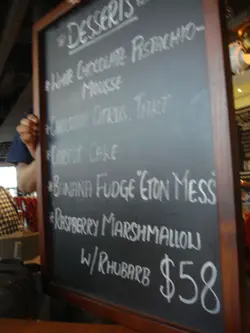 DESSERTS
* WHITE CHOCOLATE PISTACHIO-
MOUSSE
CITRUS TART
* CARROT CAKE
* BANANA FUDGE "ETON MESS"
* RASPBERRY MARSHMALLOW
W/ RHUBARB $58